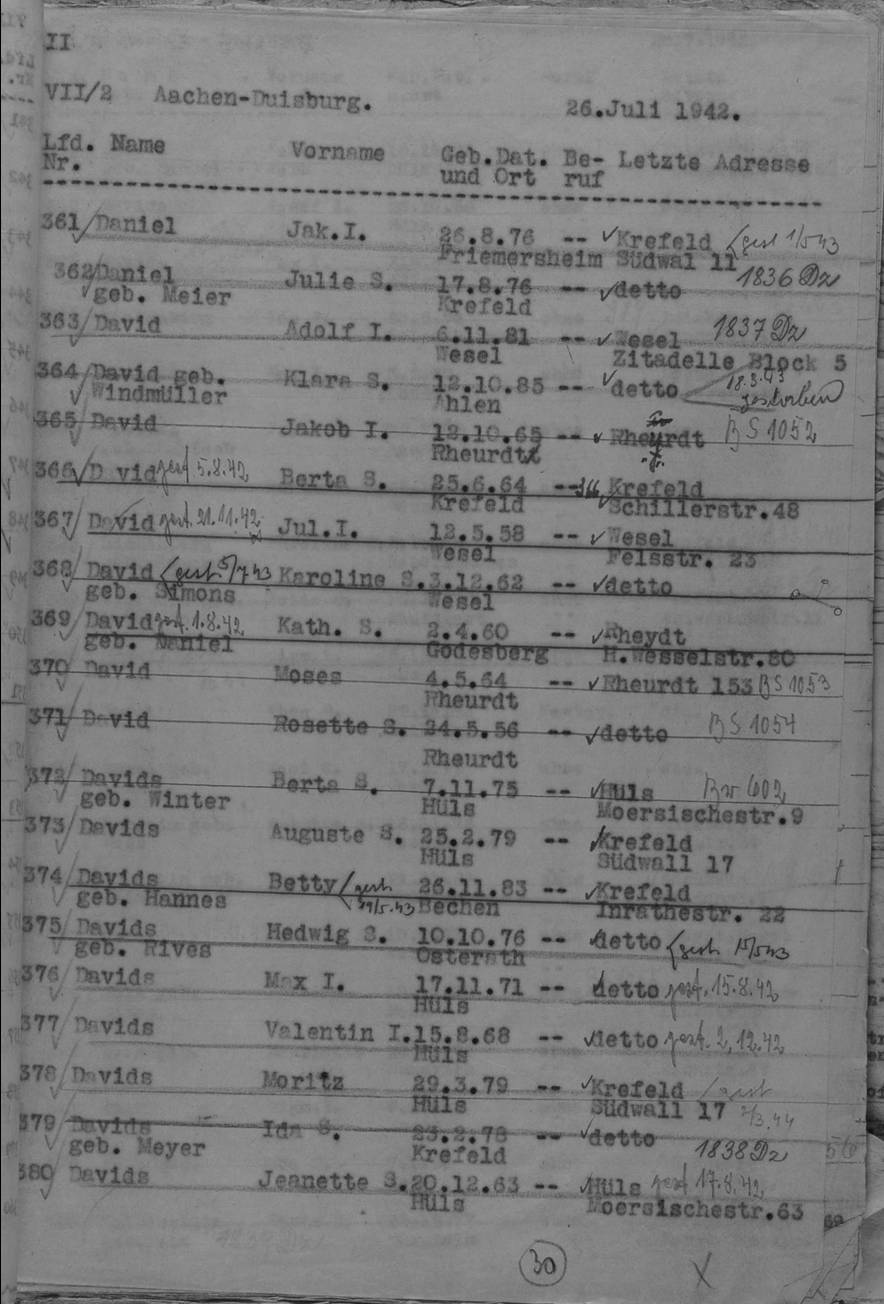 II
VII/2 Aachen-Duisburg. 26.Juli 1942.
Lfd. Name Vorname Geb.Dat. Be- Letzte Adresse
Nr. und Ort ruf
361 Daniel Jak.I. 26.8.76 -- Krefeld gest 1/5 43
Friemersheim Südwal 11
362 Daniel Julie S. 17.8.76 -- detto 1836 Dz
geb. Meier Krefeld
363 David Adolf I. 6.11.81 -- Wesel 1837 Dz
Wesel Zitadelle Block 5
364 David geb. Klara S. 12.10.85 -- detto 18.3.43
Windmüller Ahlen gestorben
365 David Jakob I. 12.10.65 -- Rheurdt BS 1052
Rheurdt
366 D vid gest 5.8.42 Berta S. 25.6.64 -- Krefeld
Krefeld Schillerstr.48
367 David gest. 21.11.42 Jul.I. 12.5.58 -- Wesel
Wesel Felsstr. 23
368 David gest. 5/7 43 Karoline S.3.12.62 -- detto
geb. Simons Wesel
369 David gest. 1.8.42 Kath. S. 2.4.60 -- Rheydt
geb. Daniel Godesberg H.Wesselstr.80
370 David Moses 4.5.64 -- Rheurdt 153 BS 1053
Rheurdt
371 David Rosette S. 24.5.56 -- detto BS 1054
Rheurdt
372 Davids Berta S. 7.11.75 -- Hüls Bw 602
geb. Winter Hüls Moersischestr.9
373 Davids Auguste S. 25.2.79 -- Krefeld
Hüls Südwall 17
374 Davids Betty gest. 26.11.83 -- Krefeld
geb. Hannes Bechen Inrathestr. 22
375 Davids Hedwig S. 10.10.76 -- detto gest. 15/5 43
geb. Rives Osterath
376 Davids Max I. 17.11.71 -- detto gest. 15.8.42
Hüls
377 Davids Valentin I.15.8.68 -- detto gest. 2.12.42
Hüls
378 Davids Moritz 29.3.79 -- Krefeld gest
Hüls Südwall 17 2/3.44
379 Davids Ida S. 23.2.78 -- detto
geb. Meyer Krefeld 1838 Dz
380 Davids Jeanette S.20.12.63 -- Hüls gest 17.8.42
Hüls Moersischestr.63
30 X